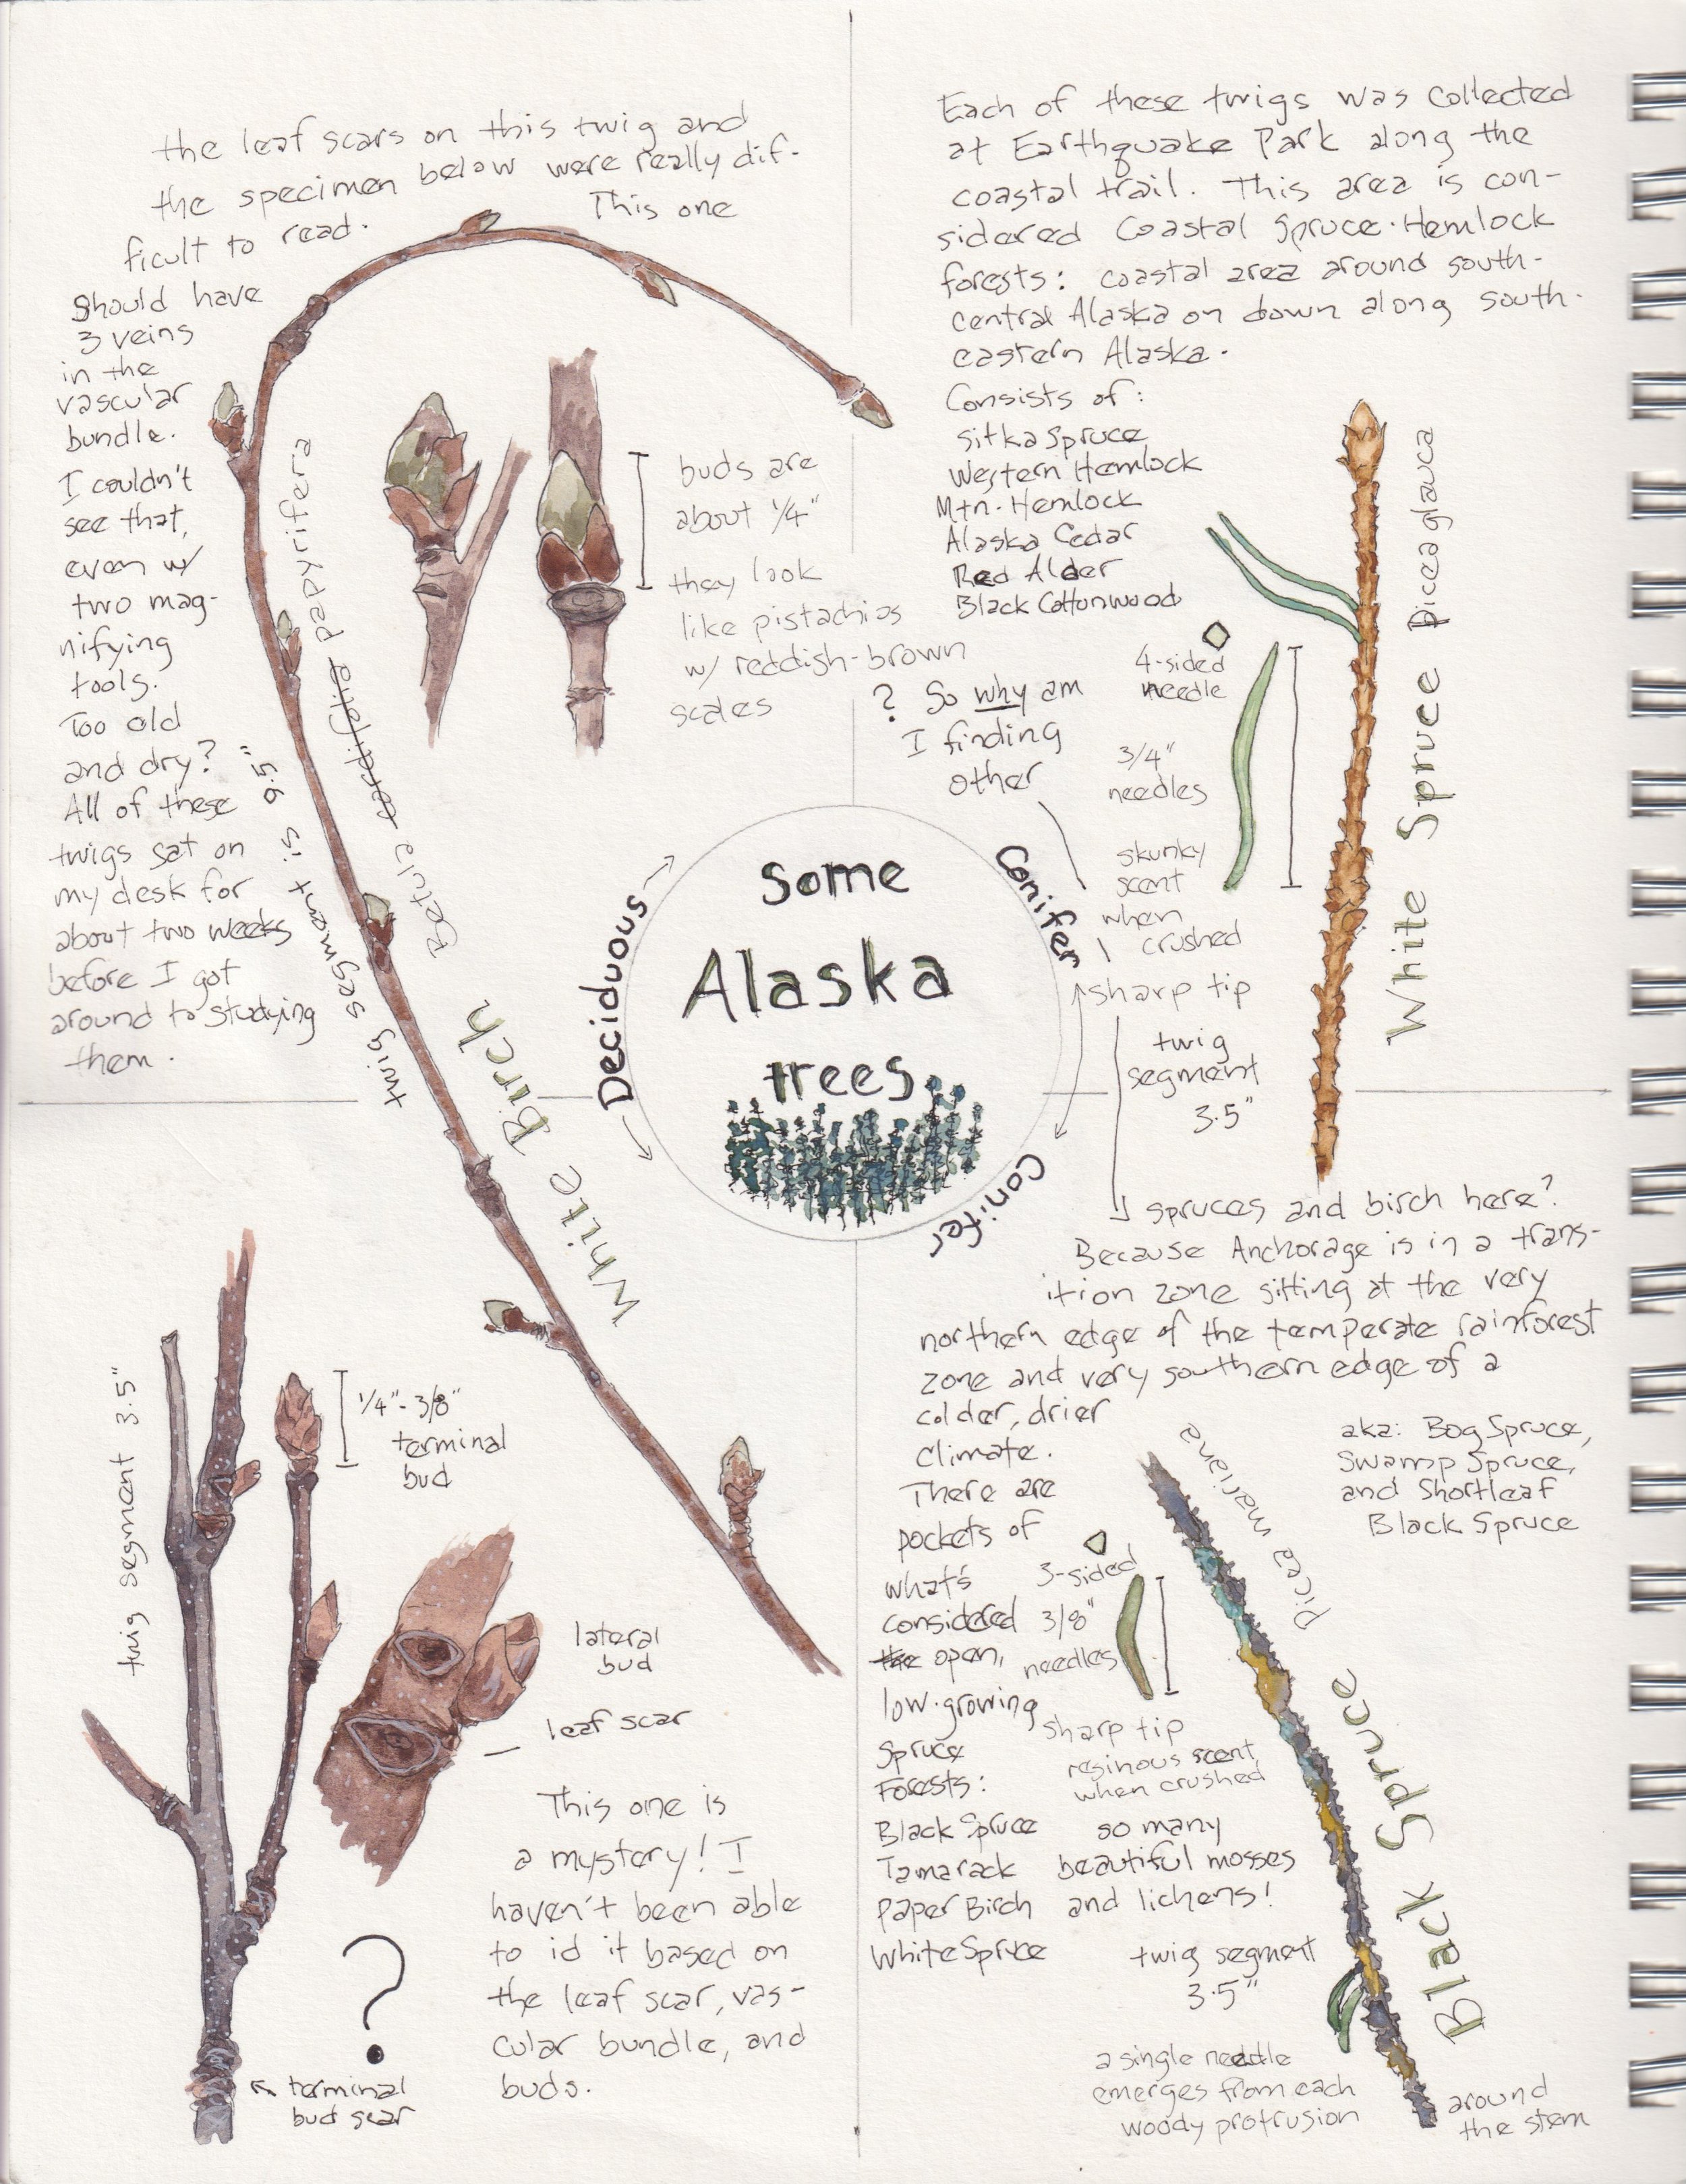 the leaf scars on this twig and
the specimen below were really dif-
ficult to read. This one
should have
3 veins
in the
vascular
bundle.
I couldn't
see that,
even w/
two mag-
nifying
tools.
Too old
and dry?
All of these
twigs sat on
my desk for
about two weeks
before I got
around to studying
them.
twig segment is 9.5"
Betula cordifolia papyrifera
White Birch
buds are
about 1/4"
they look
like pistachios
w/ reddish-brown
scales
Each of these twigs was collected
at Earthquake Park along the
coastal trail. This area is con-
sidered Coastal Spruce-Hemlock
forests: coastal area around south-
central Alaska on down along south-
eastern Alaska.
Consists of:
Sitka Spruce
Western Hemlock
Mtn. Hemlock
Alaska Cedar
Red Alder
Black Cottonwood
? So why am
I finding
other
spruces and birch here?
Because Anchorage is in a trans-
ition zone sitting at the very
northern edge of the temperate rainforest
zone and very southern edge of a
colder, drier
climate.
There are
pockets of
what's
considered
the open,
low-growing
Spruce
Forests:
Black Spruce
Tamarack
Paper Birch
White Spruce
4-sided
needle
3/4"
needles
skunky
scent
when
crushed
sharp tip
twig
segment
3.5"
White Spruce Picea glauca
Deciduous
Conifer
Conifer
Some
Alaska
trees
twig segment 3.5"
1/4"-3/8"
terminal
bud
lateral
bud
leaf scar
This one is
a mystery! I
haven't been able
to id it based on
the leaf scar, vas-
cular bundle, and
buds.
?
terminal
bud scar
aka: Bog Spruce,
Swamp Spruce,
and Shortleaf
Black Spruce
picea mariana
Black Spruce
3-sided
3/8"
needles
sharp tip
resinous scent
when crushed
so many
beautiful mosses
and lichens!
twig segment
3.5"
a single needle
emerges from each
woody protrusion
around
the stem